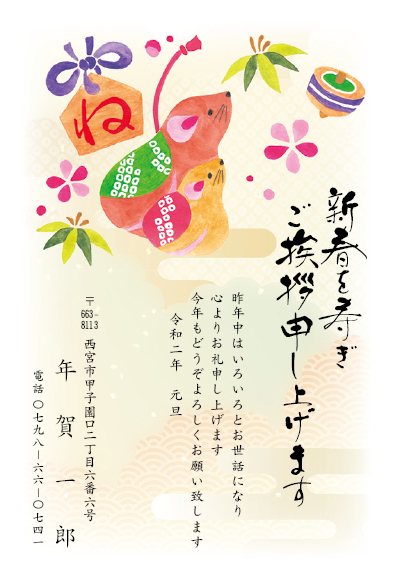 ね
新春を寿ぎ
ご挨拶申し上げます
昨年中はいろいろとお世話になり
心よりお礼申し上げます
今年もどうぞよろしくお願い致します
令和二年　元旦
〒663-8113
西宮市甲子園口二丁目六番六号
年賀一郎
電話〇七九八－六六－〇七四一